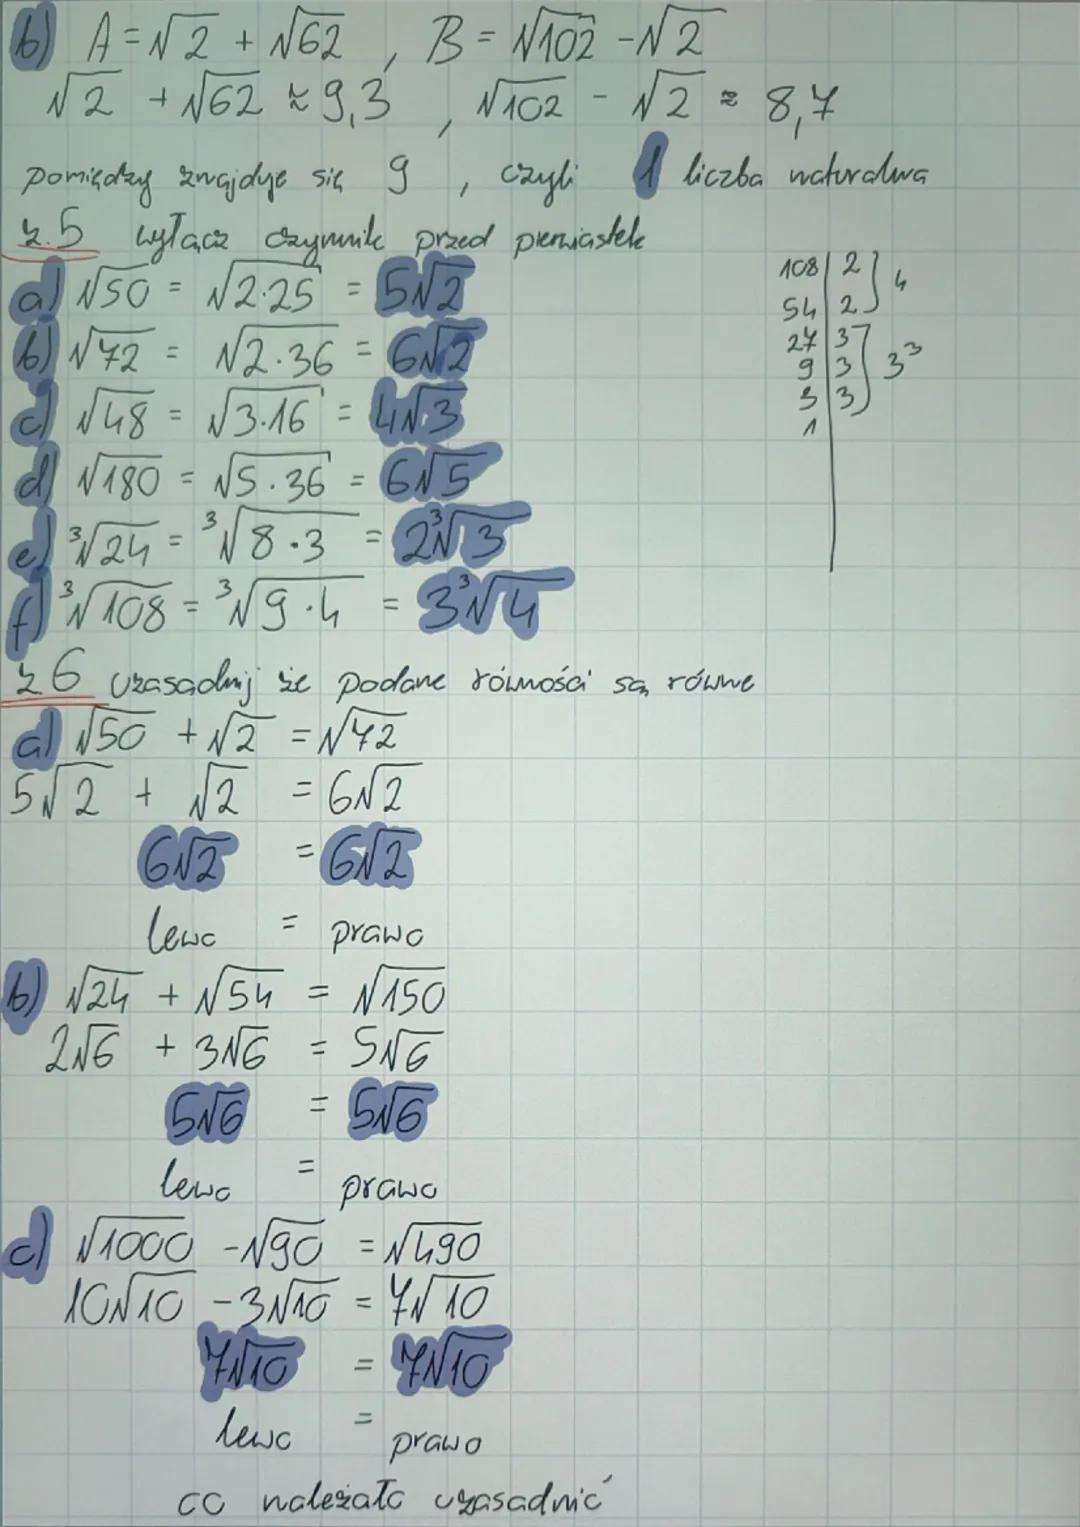 b) A = √2 + √62 , B = √102 - √2
√2 + √62 ≈ 9,3 , √102 - √2 ≈ 8,7
pomiędzy znajdyje się 9 , czyli 1 liczba naturalna
z.5 wyłącz czynnik przed pierwiastek
a) √50 = √2·25 = 5√2
b) √72 = √2·36 = 6√2
c) √48 = √3·16 = 4√3
d) √180 = √5·36 = 6√5
e) ³√24 = ³√8·3 = 2³√3
f) ³√108 = ³√9·4 = 3³√4
108 | 2
54 | 2
4
27 | 3
9 | 3
3 | 3
3³
1
z6 uzasadnij że podane równości są równe
a) √50 + √2 = √72
5√2 + √2 = 6√2
6√2 = 6√2
lewa = prawa
b) √24 + √54 = √150
2√6 + 3√6 = 5√6
5√6 = 5√6
lewa = prawa
c) √1000 - √90 = √490
10√10 - 3√10 = 7√10
7√10 = 7√10
lewa = prawa
co należało uzasadnić